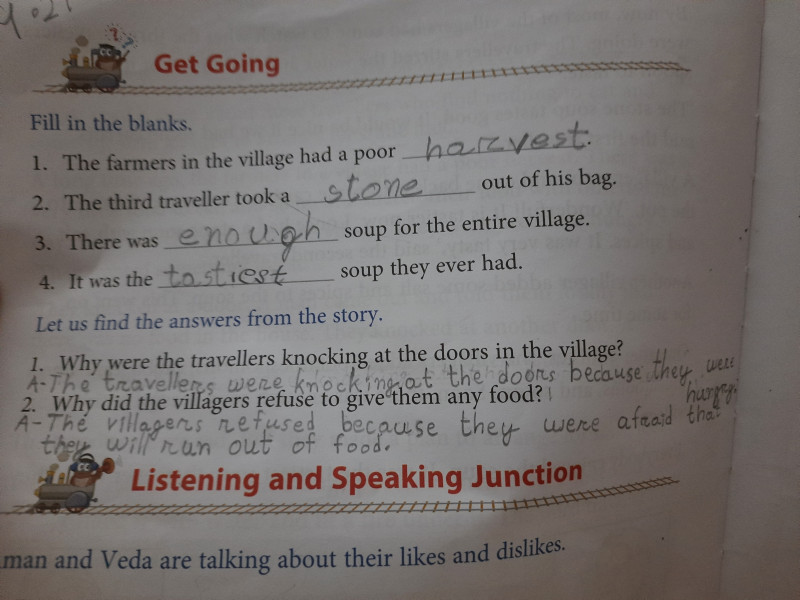 Get Going
Fill in the blanks.
1. The farmers in the village had a poor harvest.
2. The third traveller took a stone out of his bag.
3. There was enough soup for the entire village.
4. It was the tastiest soup they ever had.
Let us find the answers from the story.
1. Why were the travellers knocking at the doors in the village?
A-The travellers were knocking at the doors because they were
hungry
2. Why did the villagers refuse to give them any food?
A-The villagers refused because they were afraid that
they will run out of food.
Listening and Speaking Junction
man and Veda are talking about their likes and dislikes.